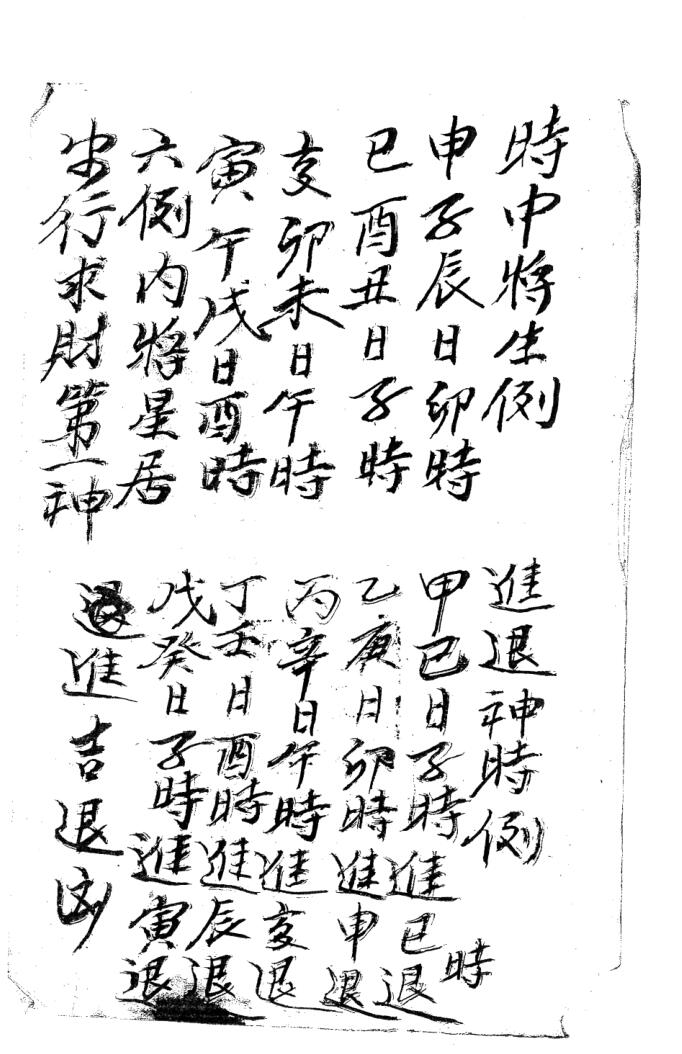 時中將生例
申子辰日卯時
巳酉丑日子時
亥卯未日午時
寅午戌日酉時
六例內將星居
出行求財第一神
進退神時例
甲己日子時進巳退時
乙庚日卯時進申退
丙辛日午時進亥退
丁壬日酉時進辰退
戊癸日子時進寅退
進吉退凶